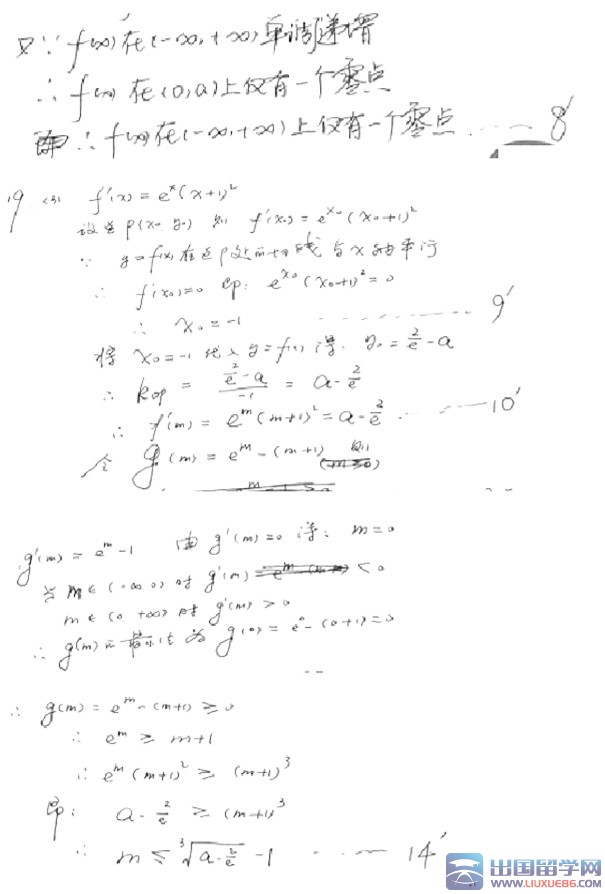 又∵ f(x)在(-∞,+∞)单调递增
∴ f(x) 在(0,a)上仅有一个零点
∴ f(x)在(-∞,+∞)上仅有一个零点 …… 8'
19 (3) f'(x) = eˣ(x+1)²
设点P(x₀ y₀) 则 f'(x₀) = e^{x₀}(x₀+1)²
∵ y=f(x)在点P处的切线与x轴平行
∴ f'(x₀)=0 即: e^{x₀}(x₀+1)²=0
∴ x₀=-1 …… 9'
将 x₀=-1 代入 y=f(x) 得. y₀ = 2/e - a
∴ k_{OP} = (2/e - a)/-1 = a - 2/e
∴ f'(m) = e^m(m+1)² = a - 2/e …… 10'
令 g(m) = e^m - (m+1) 则
g'(m) = e^m - 1 由 g'(m)=0 得: m=0
当 m∈(-∞ 0) 时 g'(m) < 0
m∈(0 +∞) 时 g'(m) > 0
∴ g(m)的最小值为 g(0) = e⁰-(0+1)=0
∴ g(m) = e^m - (m+1) ≥ 0
∴ e^m ≥ m+1
∴ e^m(m+1)² ≥ (m+1)³
即: a - 2/e ≥ (m+1)³
∴ m ≤ ∛(a - 2/e) - 1 …… 14'
出国留学网
WWW.LIUXUE86.COM